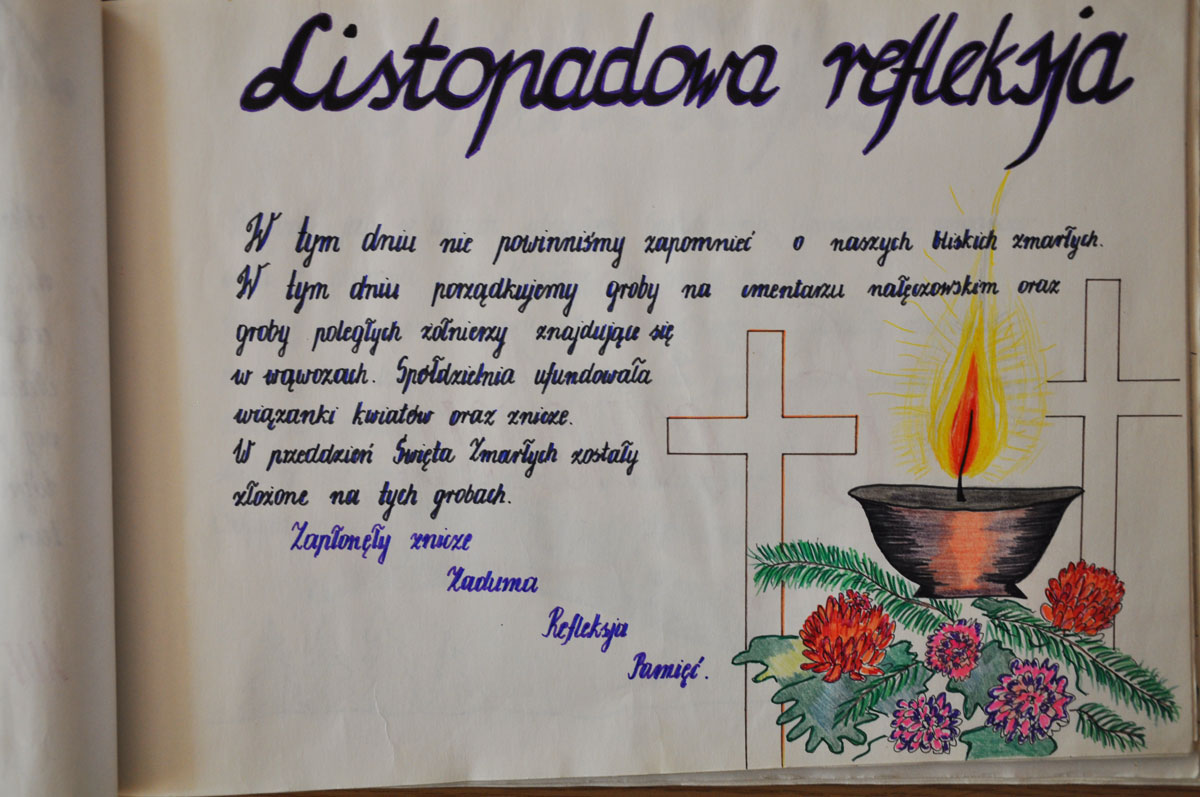 Listopadowa refleksja
W tym dniu nie powinniśmy zapomnieć o naszych bliskich zmarłych.
W tym dniu porządkujemy groby na cmentarzu nałęczowskim oraz
groby poległych żołnierzy znajdujące się
w wąwozach. Spółdzielnia ufundowała
wiązanki kwiatów oraz znicze.
W przeddzień Święta Zmarłych zostały
złożone na tych grobach.
Zapłonęły znicze
Zaduma
Refleksja
Pamięć.